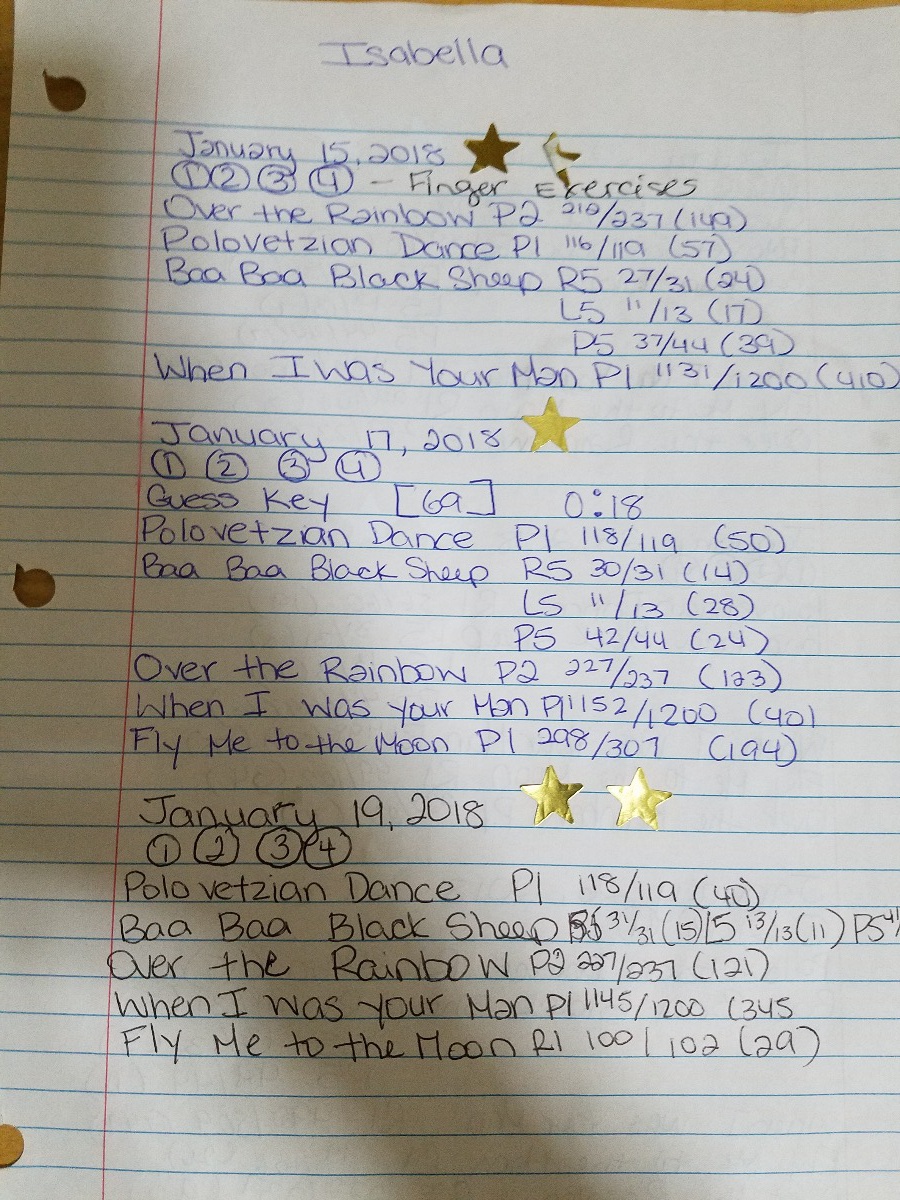 Isabella
January 15, 2018
① ② ③ ④ - Finger Exercises
Over the Rainbow P2 219/237 (149)
Polovetzian Dance P1 116/119 (57)
Baa Baa Black Sheep R5 27/31 (24)
L5 11/13 (17)
P5 37/44 (39)
When I Was Your Man P1 1131/1200 (410)
January 17, 2018
① ② ③ ④
Guess Key [69] 0:18
Polovetzian Dance P1 118/119 (50)
Baa Baa Black Sheep R5 30/31 (14)
L5 11/13 (28)
P5 42/44 (24)
Over the Rainbow P2 227/237 (123)
When I Was your Man P1 1152/1200 (401
Fly Me to the Moon P1 298/307 (194)
January 19, 2018
① ② ③ ④
Polovetzian Dance P1 118/119 (40)
Baa Baa Black Sheep 31/31 (15) L5 13/13 (11) P5
Over the Rainbow P2 227/237 (121)
When I was your Man P1 1145/1200 (345
Fly Me to the Moon R1 100/102 (29)